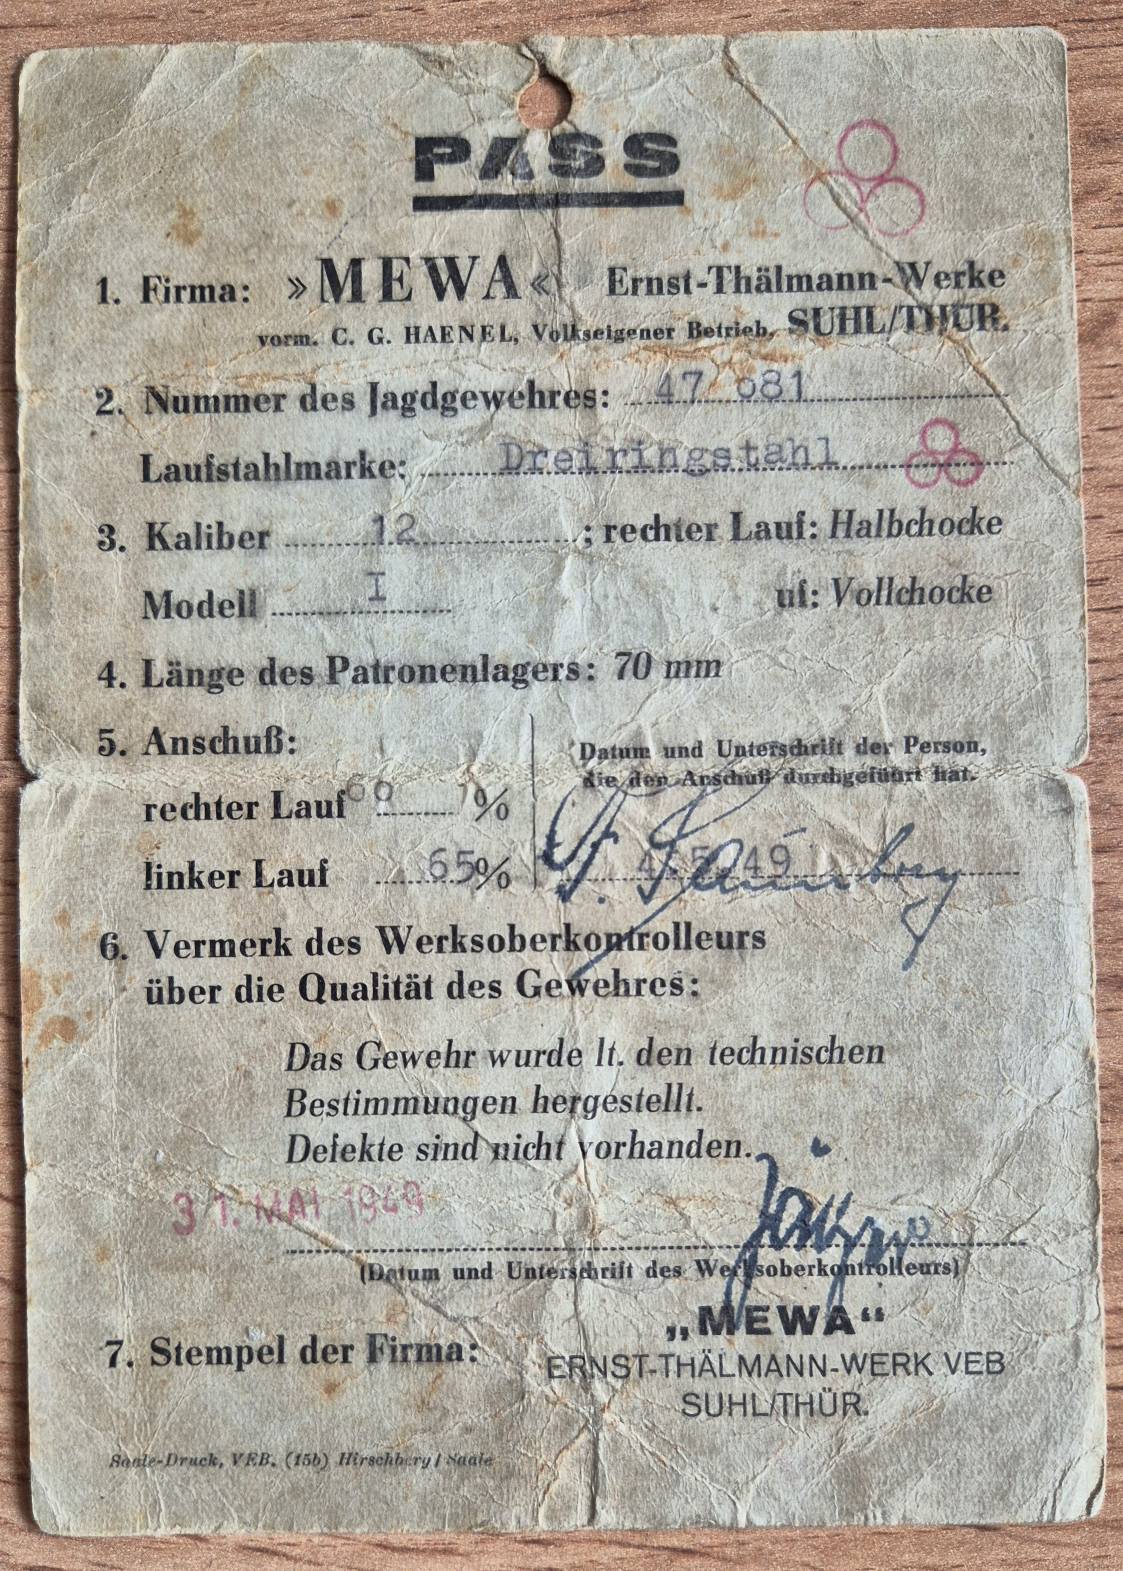 PASS
1. Firma: »MEWA« Ernst-Thälmann-Werke
vorm. C. G. HAENEL, Volkseigener Betrieb, SUHL/THÜR.
2. Nummer des Jagdgewehres: 47 o81
Laufstahlmarke: Dreiringstahl
3. Kaliber 12 ; rechter Lauf: Halbchocke
Modell I uf: Vollchocke
4. Länge des Patronenlagers: 70 mm
5. Anschuß:
Datum und Unterschrift der Person,
die den Anschuß durchgeführt hat.
rechter Lauf 60 %
linker Lauf 65%
49
6. Vermerk des Werksoberkontrolleurs
über die Qualität des Gewehres:
Das Gewehr wurde lt. den technischen
Bestimmungen hergestellt.
Defekte sind nicht vorhanden.
31. MAI 1949
(Datum und Unterschrift des Werksoberkontrolleurs)
7. Stempel der Firma:
„MEWA“
ERNST-THÄLMANN-WERK VEB
SUHL/THÜR.
Saale-Druck, VEB. (15b) Hirschberg / Saale